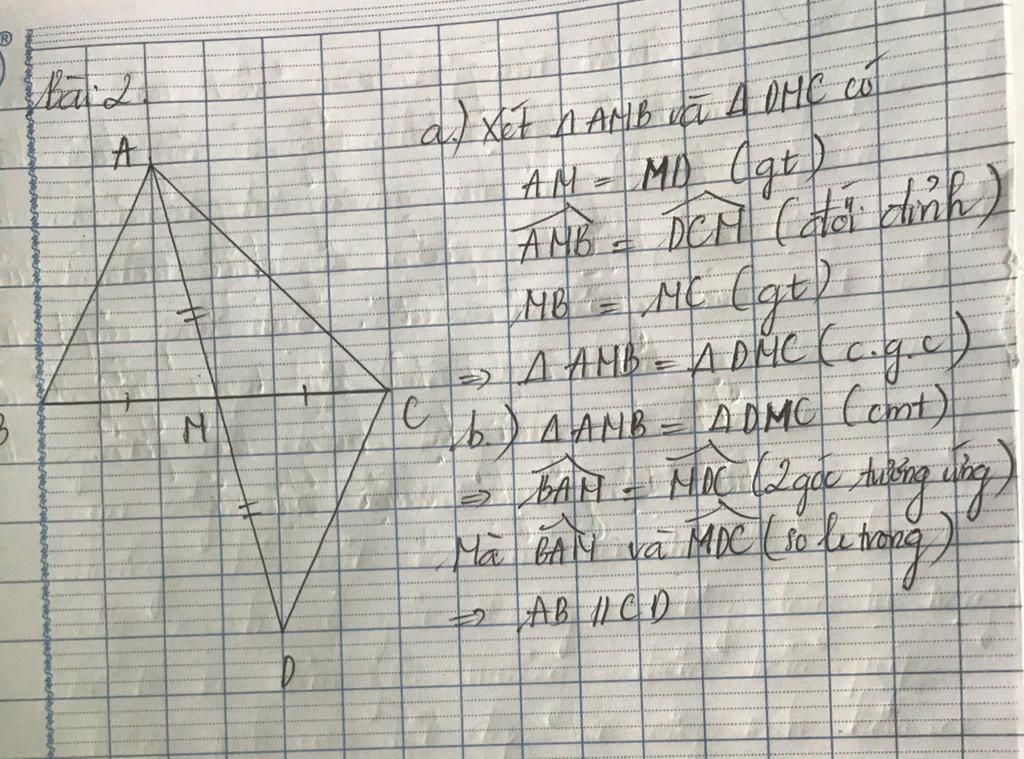 ®
Bài 2.
A
B
M
C
D
a.) Xét Δ AMB và Δ DMC có
AM = MD (gt)
AMB = DCM (đối đỉnh)
MB = MC (gt)
=> Δ AMB = Δ DMC (c.g.c)
b.) Δ AMB = Δ DMC (cmt)
=> BAM = MDC (2 góc tương ứng)
Mà BAM và MDC (so le trong)
=> AB // CD